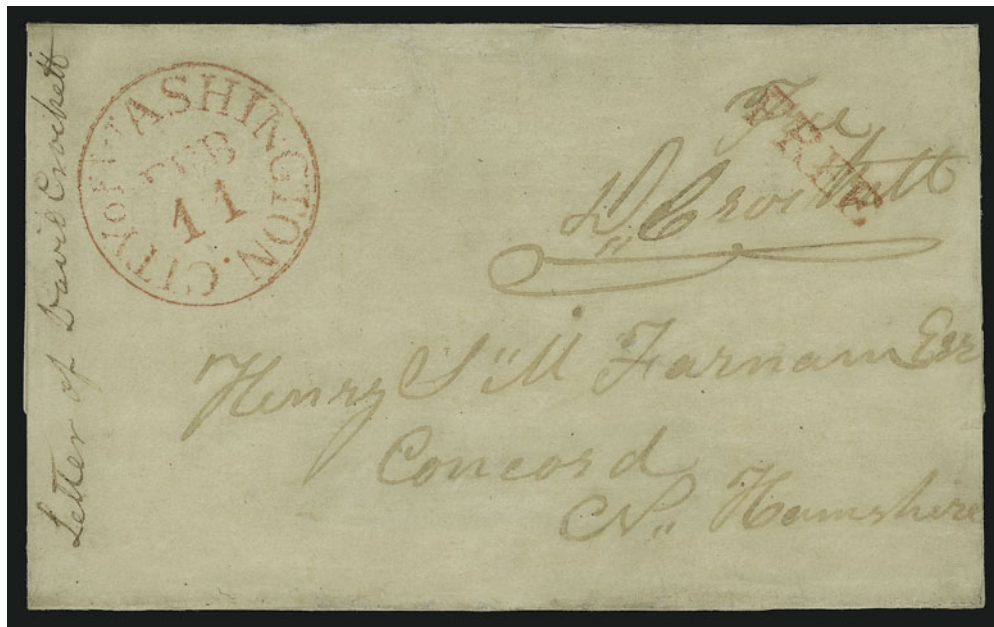 Letter of David Crockett
CITY OF WASHINGTON.
FEB
11
Free
FREE
D,, Crockett
Henry S" M Farnam Esr
Concord
N,, Hamshire